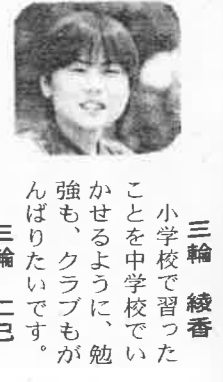 三輪 綾香
小学校で習った
ことを中学校でい
かせるように、勉
強も、クラブもが
んばりたいです。
三輪